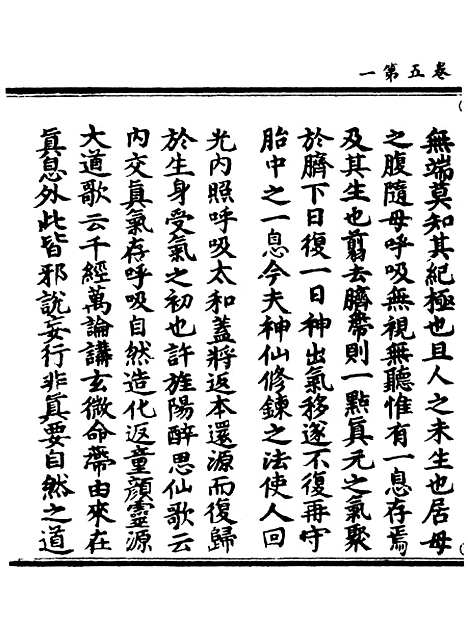 卷五第一
無端莫知其紀極也且人之未生也居母
之腹隨母呼吸無視無聽惟有一息存焉
及其生也剪去臍帶則一點真元之氣聚
於臍下日復一日神出氣移遂不復再守
胎中之一息今夫神仙修鍊之法使人回
光內照呼吸太和蓋將返本還源而復歸
於生身受氣之初也許旌陽醉思仙歌云
內交真氣存呼吸自然造化返童顏靈源
大道歌云千經萬論講玄微命帶由來在
真息外此皆邪說妄行非真要自然之道